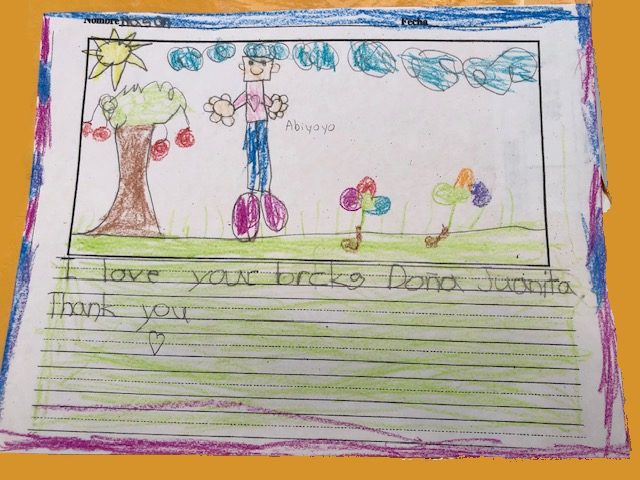 Nombre
Fecha
Abiyoyo
I love your brcks Doña Juanita
Thank you